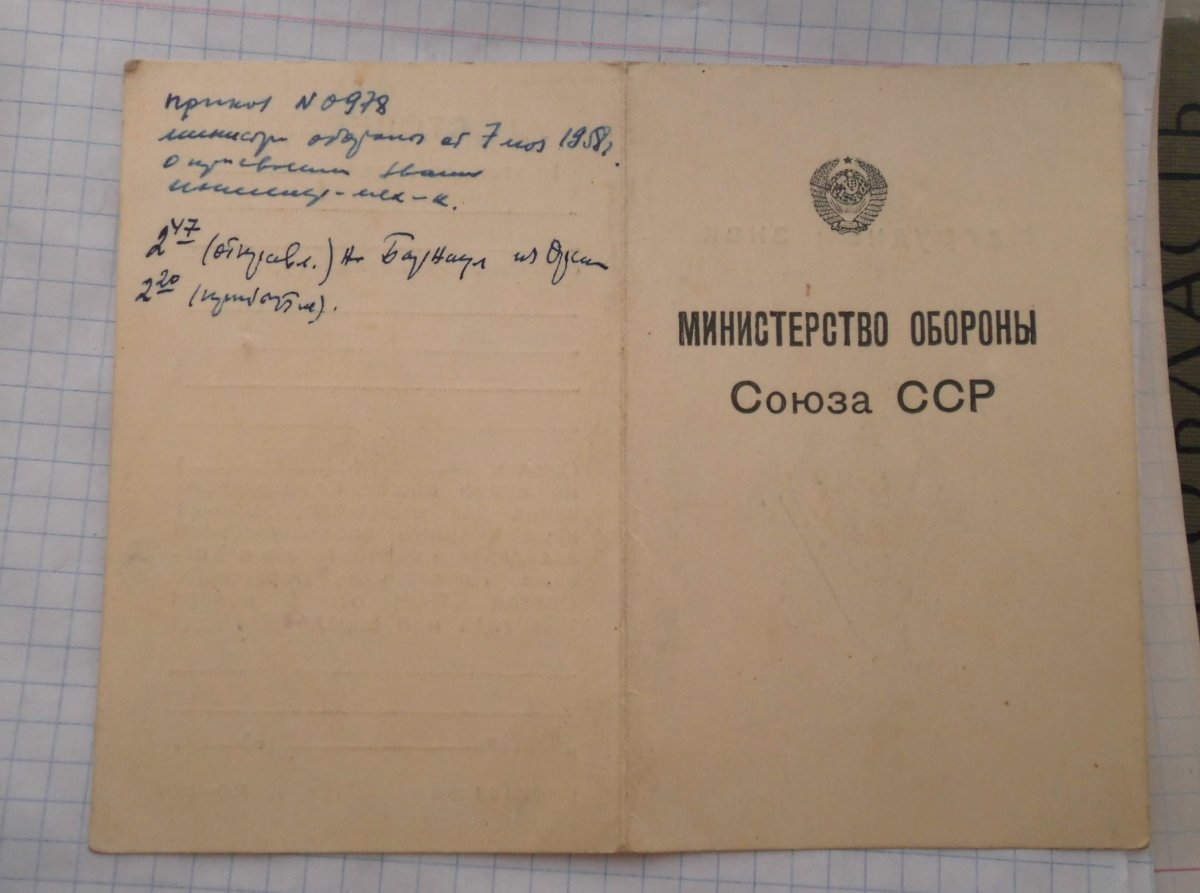 приказ N 0978
министра обороны от 7 1958 г.
о присвоении звания
инженер-
2 47 (отправл.) на Барнаул из
2 20 (прибытия).
МИНИСТЕРСТВО ОБОРОНЫ
Союза ССР